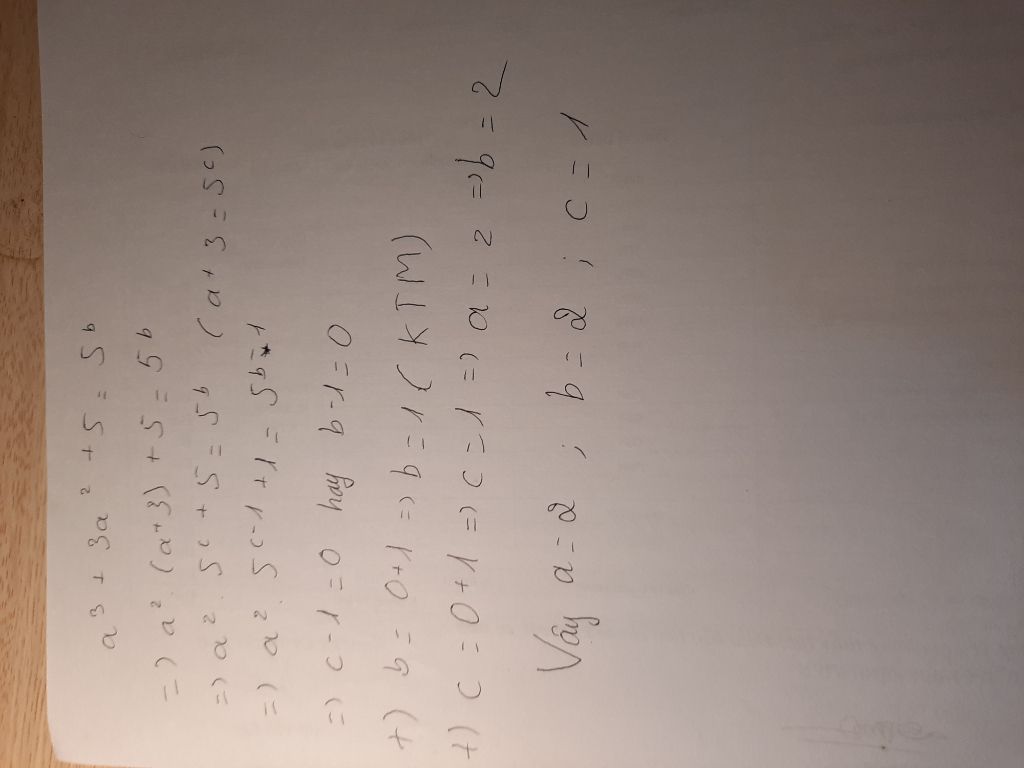 a³ + 3a² + 5 = 5ᵇ
=) a².(a+3) + 5 = 5ᵇ
=) a². 5ᶜ + 5 = 5ᵇ (a + 3 = 5ᶜ)
=) a². 5ᶜ⁻¹ + 1 = 5ᵇ⁻¹
=) c - 1 = 0 hay b - 1 = 0
+) b = 0 + 1 =) b = 1 (KTM)
+) c = 0 + 1 =) c = 1 =) a = 2 =) b = 2
Vậy a = 2 ; b = 2 ; c = 1